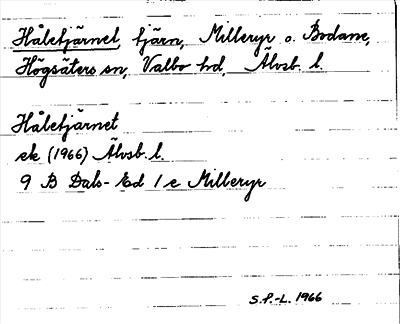 Håletjärnet, tjärn, Milleryr o. Bodane,
Högsäters sn, Valbo hd, Älvsb. l.
Håletjärnet
ek (1966) Älvsb. l.
9 B Dals-Ed 1 e Milleryr
S.P.-L. 1966